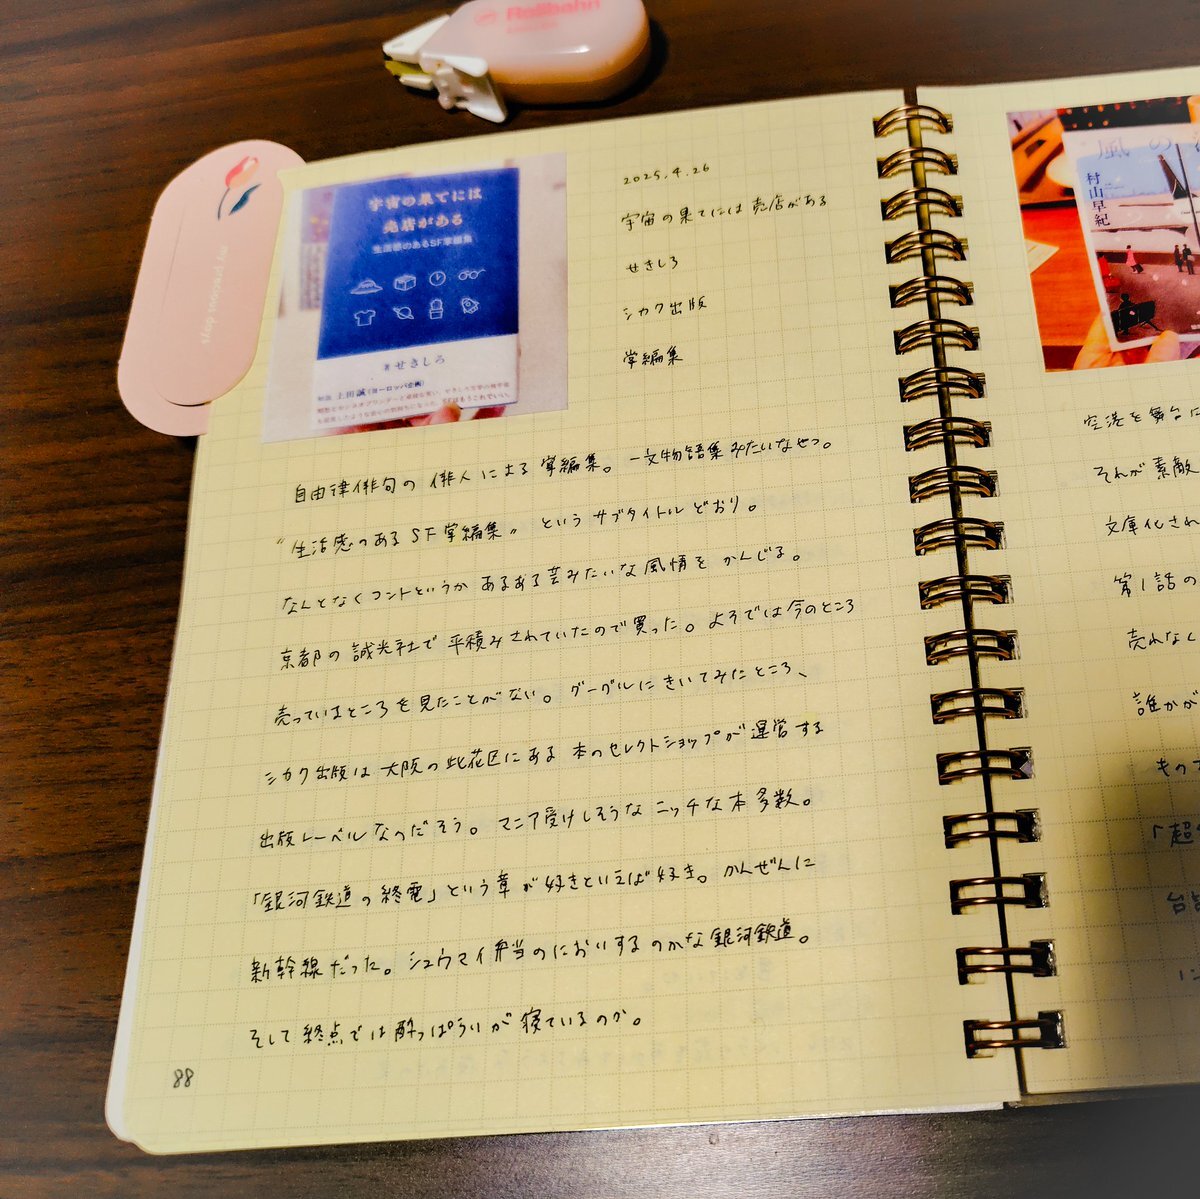 Rollbahn
my precious days
宇宙の果てには
売店がある
生活感のあるSF掌編集
著 せきしろ
解説 上田誠(ヨーロッパ企画)
2025.4.26
宇宙の果てには売店がある
せきしろ
シカク出版
掌編集
自由律俳句の俳人による掌編集。一文物語集みたいなやつ。
"生活感のあるSF掌編集"というサブタイトルどおり。
なんとなくコントというかあるある芸みたいな風情をかんじる。
京都の誠光社で平積みされていたので買った。よそでは今のところ
売っているところを見たことがない。グーグルにきいてみたところ、
シカク出版は大阪の此花区にある本のセレクトショップが運営する
出版レーベルなのだそう。マニア受けしそうなニッチな本多数。
「銀河鉄道の終電」という章が好きといえば好き。かんぜんに
新幹線だった。シュウマイ弁当のにおいするのかな銀河鉄道。
そして終点では酔っぱらいが寝ているのか。
88
風の
村山早紀
空港を舞台に
それが素敵
文庫化され
第1話の
売れなく
誰かが
もの
「超